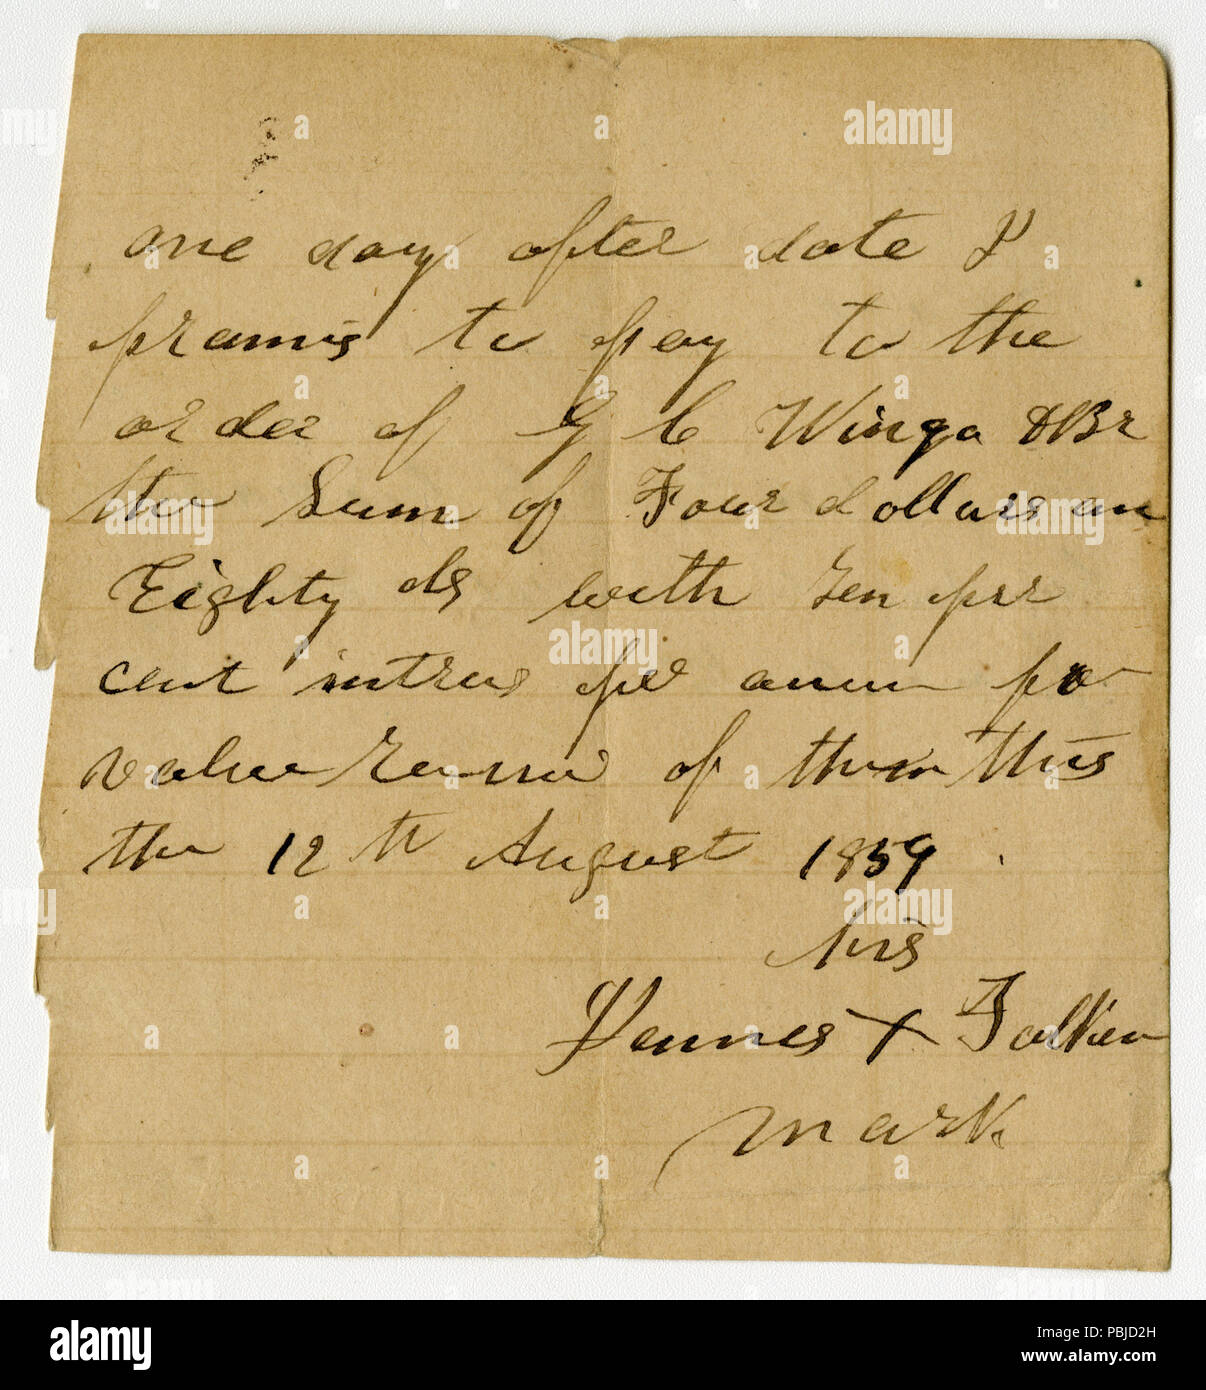 one day after date I
promis to pay to the
order of G C Winga & Br
the Sum of Four dollars an
Eighty cts with ten per
cent intrus per anum for
value of them this
the 12 th August 1859
his
X
mark
alamy
Image ID: PBJD2H
www.alamy.com